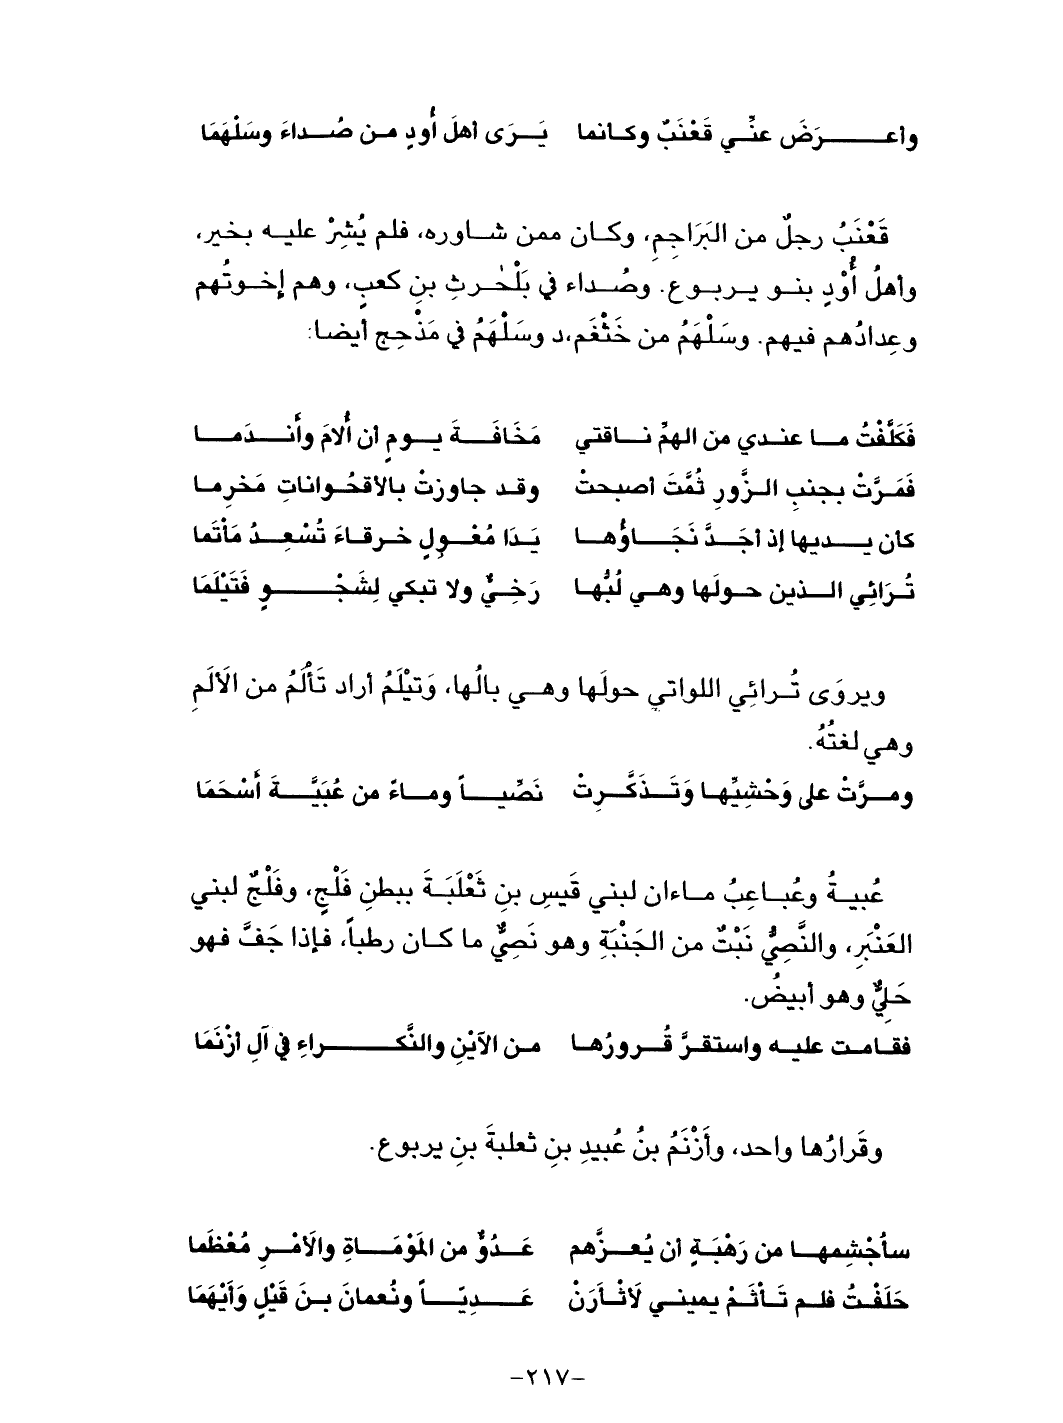 واعـرَضَ عنِّي قَعْنَبٌ وكـانما يَـرَى اهلَ أُودٍ مـن صُـداءَ وسَلْهَمَا
قَعْنَبُ رجلٌ من البَرَاجِمِ، وكـان ممن شـاوره، فلم يُشِرْ عليـه بخير،
وأهلُ أُوْدٍ بنـو يـربـوع. وصُـداء في بَلْحٰـرثِ بنِ كعبٍ، وهم إخـوتُهم
وعِدادُهم فيهم. وسَلْهَمُ من خَثْعَم،د وسَلْهَمُ في مَذْحِج أيضا:
فَكَلَّفْتُ مـا عندي من الهمِّ نـاقتي مَخَافَـةَ يـومٍ أن أُلامَ وأَنـدَمـا
فَمَـرَّتْ بجنبِ الـزَّورِ ثُمَّتَ أصبحتْ وقـد جاوزتْ بـالأقحُـواناتِ مَخرِمـا
كأن يـديها إذ أجَـدَّ نَجَـاؤُهـا يَـدَا مُعْـوِلٍ خـرقـاءَ تُسْعِـدُ مَأْتَما
تُـرَائِي الـذين حـولَها وهـي لُبُّها رَخِيٌّ ولا تبكي لِشَجْـوٍ فَتَيْلَمَا
ويروَى تُـرائِي اللواتي حولَها وهـي بالُها، وَتيْلَمُ أراد تَأْلَمُ من الأَلَمِ
وهي لغتُهُ.
ومـرَّتْ على وَحْشيِّهـا وَتَـذَكَّـرِتْ نَصِّيـاً ومـاءً من عُبَيَّـةَ أَسْحَمَا
عُبيـةُ وعُبـاعِبُ مـاءان لبني قَيسِ بنِ ثَعْلَبَـةَ ببطنِ فَلْجٍ، وفَلْجٌ لبني
العَنْبَرِ، والنَّصِيُّ نَبْتٌ من الجَنْبَةِ وهو نَصِيٌّ ما كـان رطباً، فإذا جَفَّ فهو
حَلِيٌّ وهو أبيضُ.
فقـامـت عليـه واستقـرَّ قُـرورُهـا مـن الآيْنِ والنَّكـراءِ في آلِ أزْنَمَا
وقَرارُها واحد، وأَزْنَمُ بنُ عُبيدِ بنِ ثعلبةَ بنِ يربوع.
سأجْشِمهـا من رَهْبَـةٍ أن يُعـزَّهم عَـدُوٌّ من المَوْمَـاةِ والأَمْـرِ مُعْظَما
حَلَفْـتُ فلـم تَـأْثَـمْ يمينـي لَأثْـأرَنْ عَـديّـاً ونُعمانَ بـنَ قَيْلٍ وَأَيْهَمَا
-٢١٧-